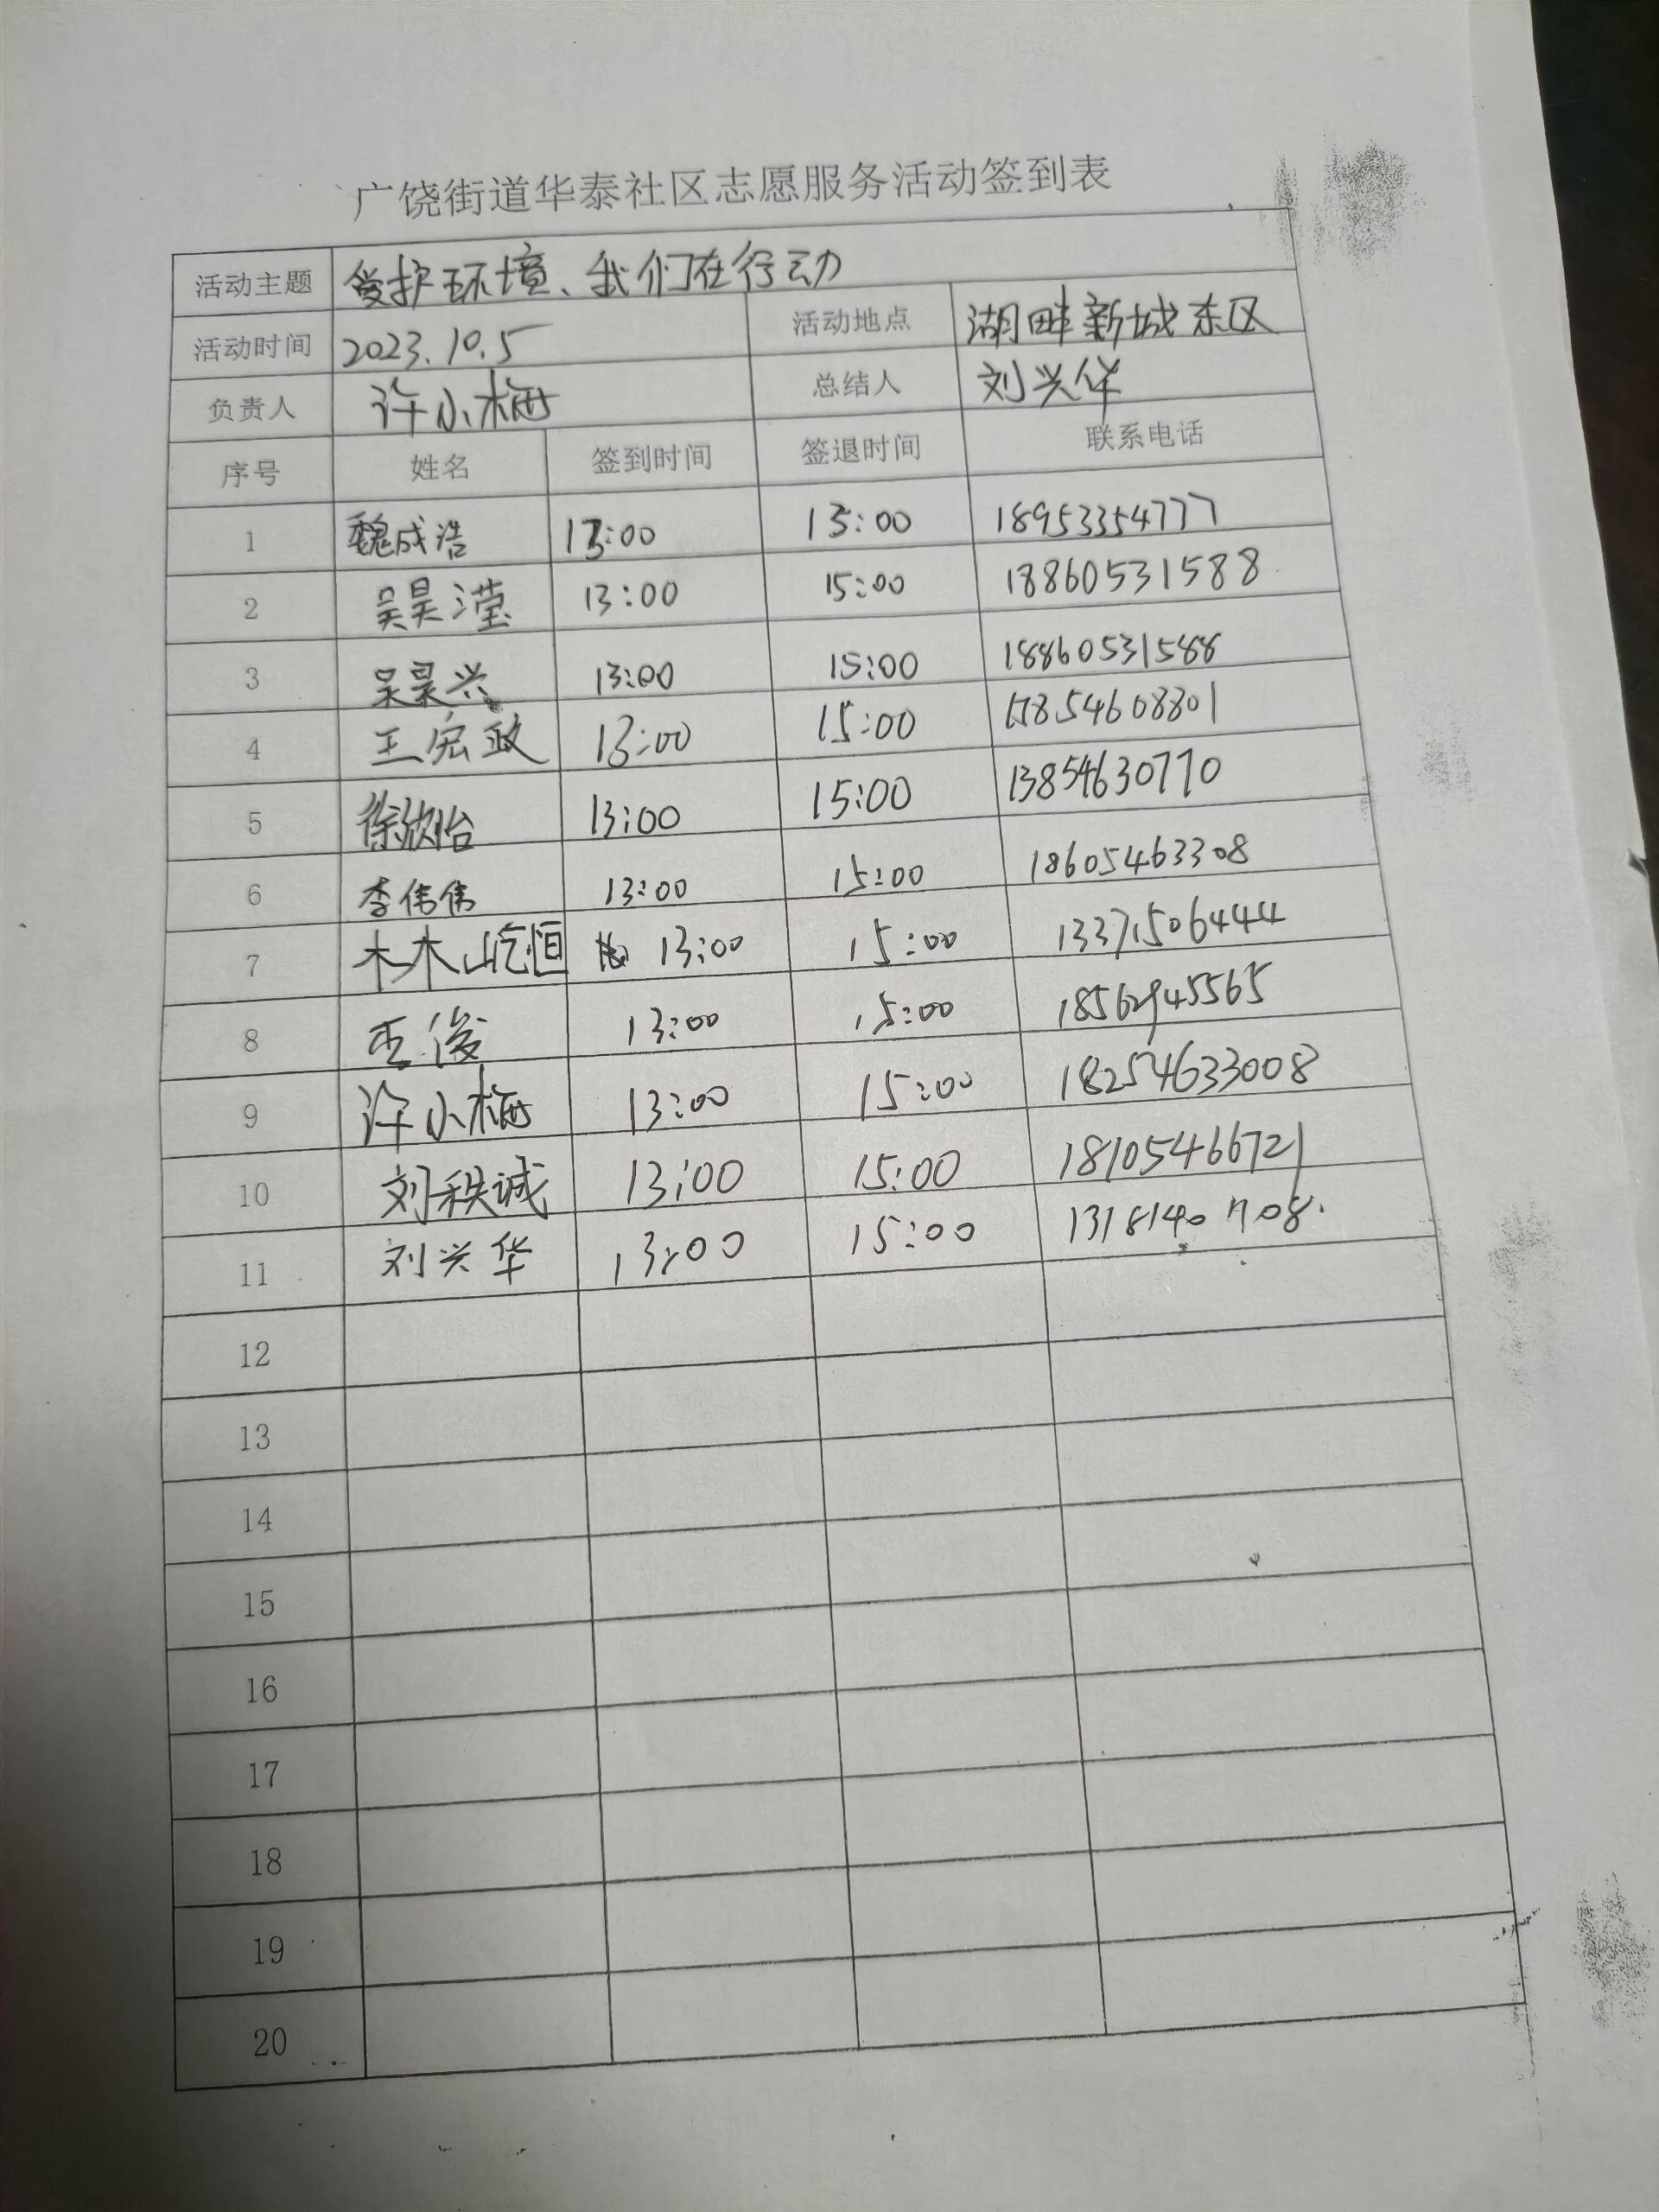 广饶街道华泰社区志愿服务活动签到表
活动主题 爱护环境、我们在行动
活动时间 2023.10.5 活动地点 湖畔新城东区
负责人 许小梅 总结人 刘兴华
序号 姓名 签到时间 签退时间 联系电话
1 魏成浩 13:00 15:00 18953354777
2 吴昊滢 13:00 15:00 18860531588
3 吴昊兴 13:00 15:00 18860531588
4 王宏政 13:00 15:00 17854608801
5 徐欣怡 13:00 15:00 13854630770
6 李伟伟 13:00 15:00 18605463308
7 林屹恒 13:00 15:00 13371506444
8 王俊 13:00 15:00 18562945565
9 许小梅 13:00 15:00 18254633008
10 刘秩诚 13:00 15:00 18105466721
11 刘兴华 13:00 15:00 13181407708.
12
13
14
15
16
17
18
19
20